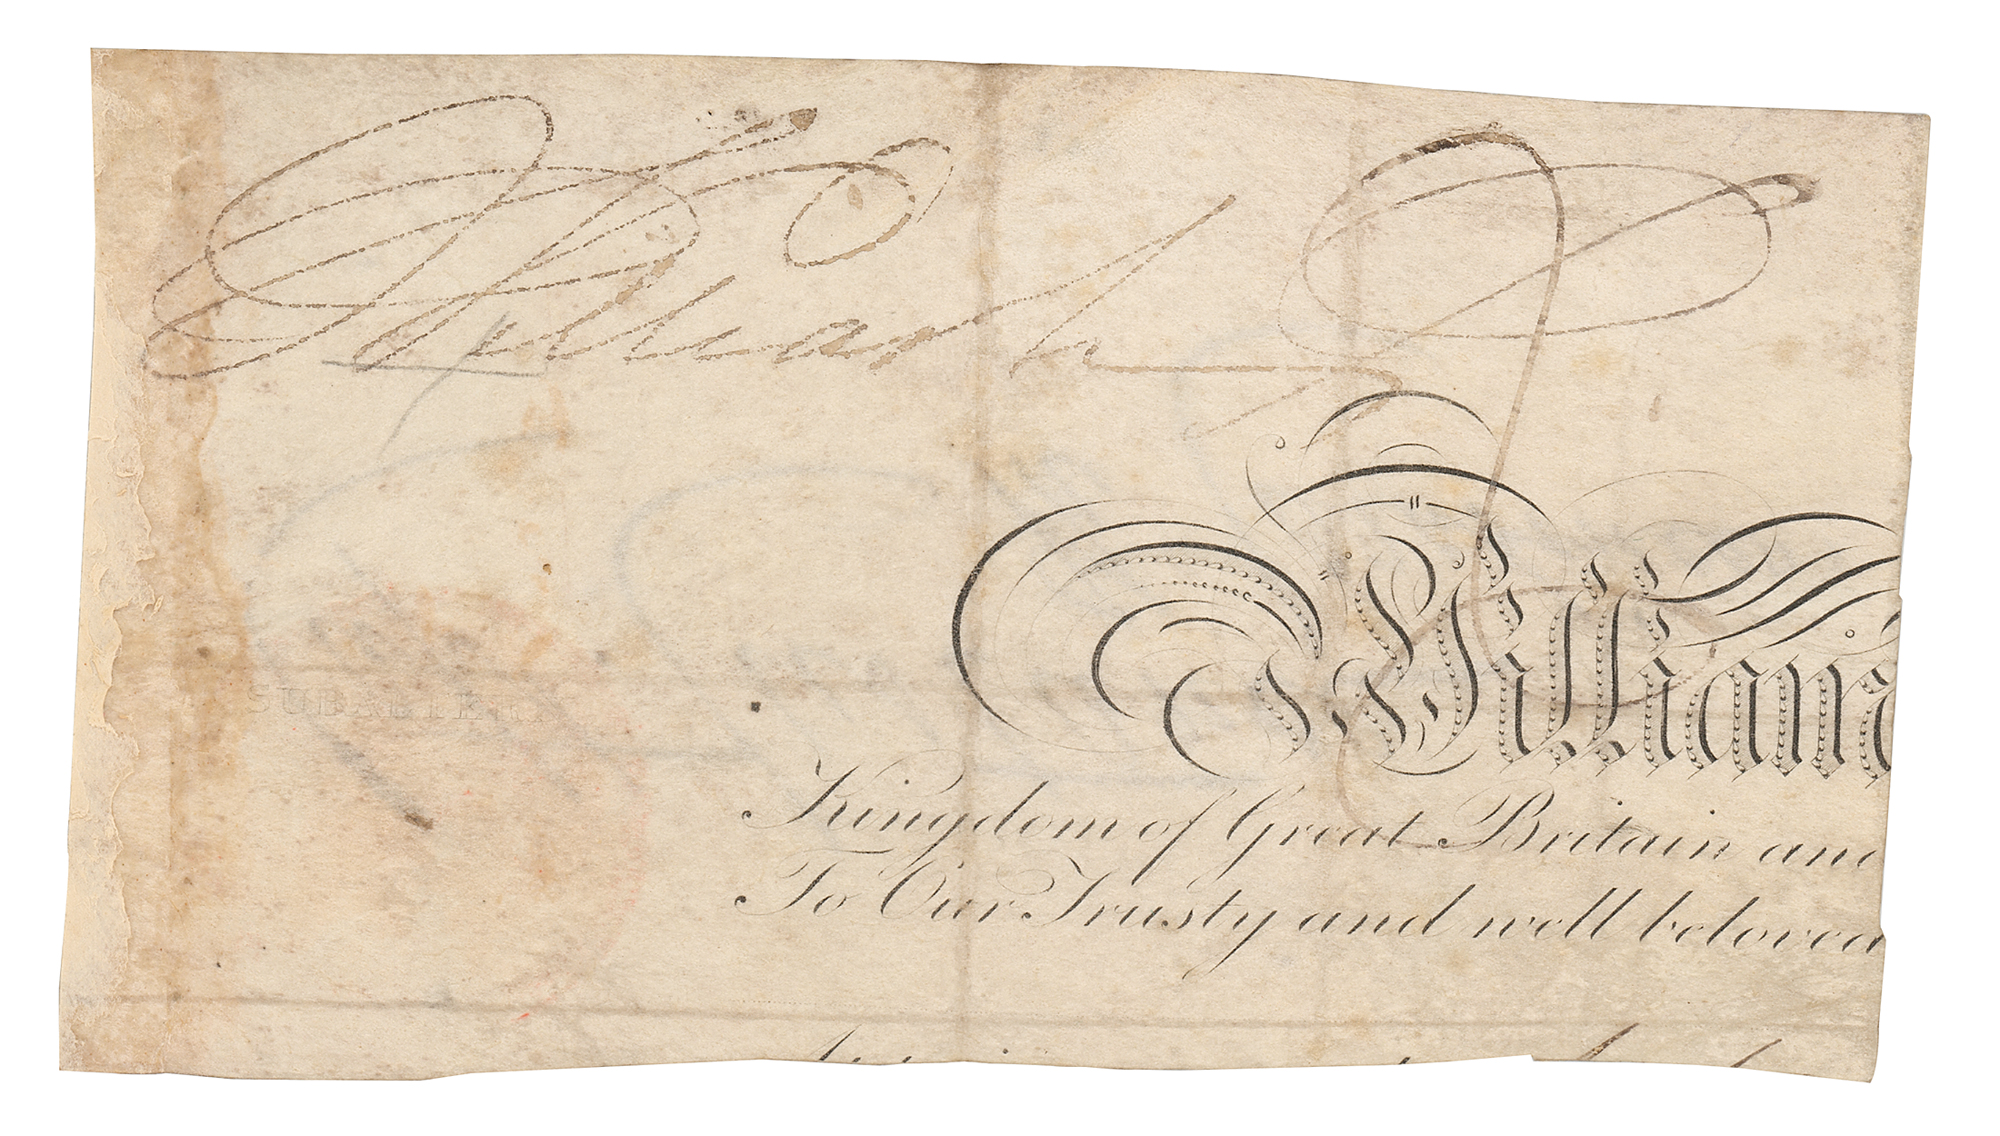 William R
William
SUBALTERN
Kingdom of Great Britain and
To Our Trusty and well beloved